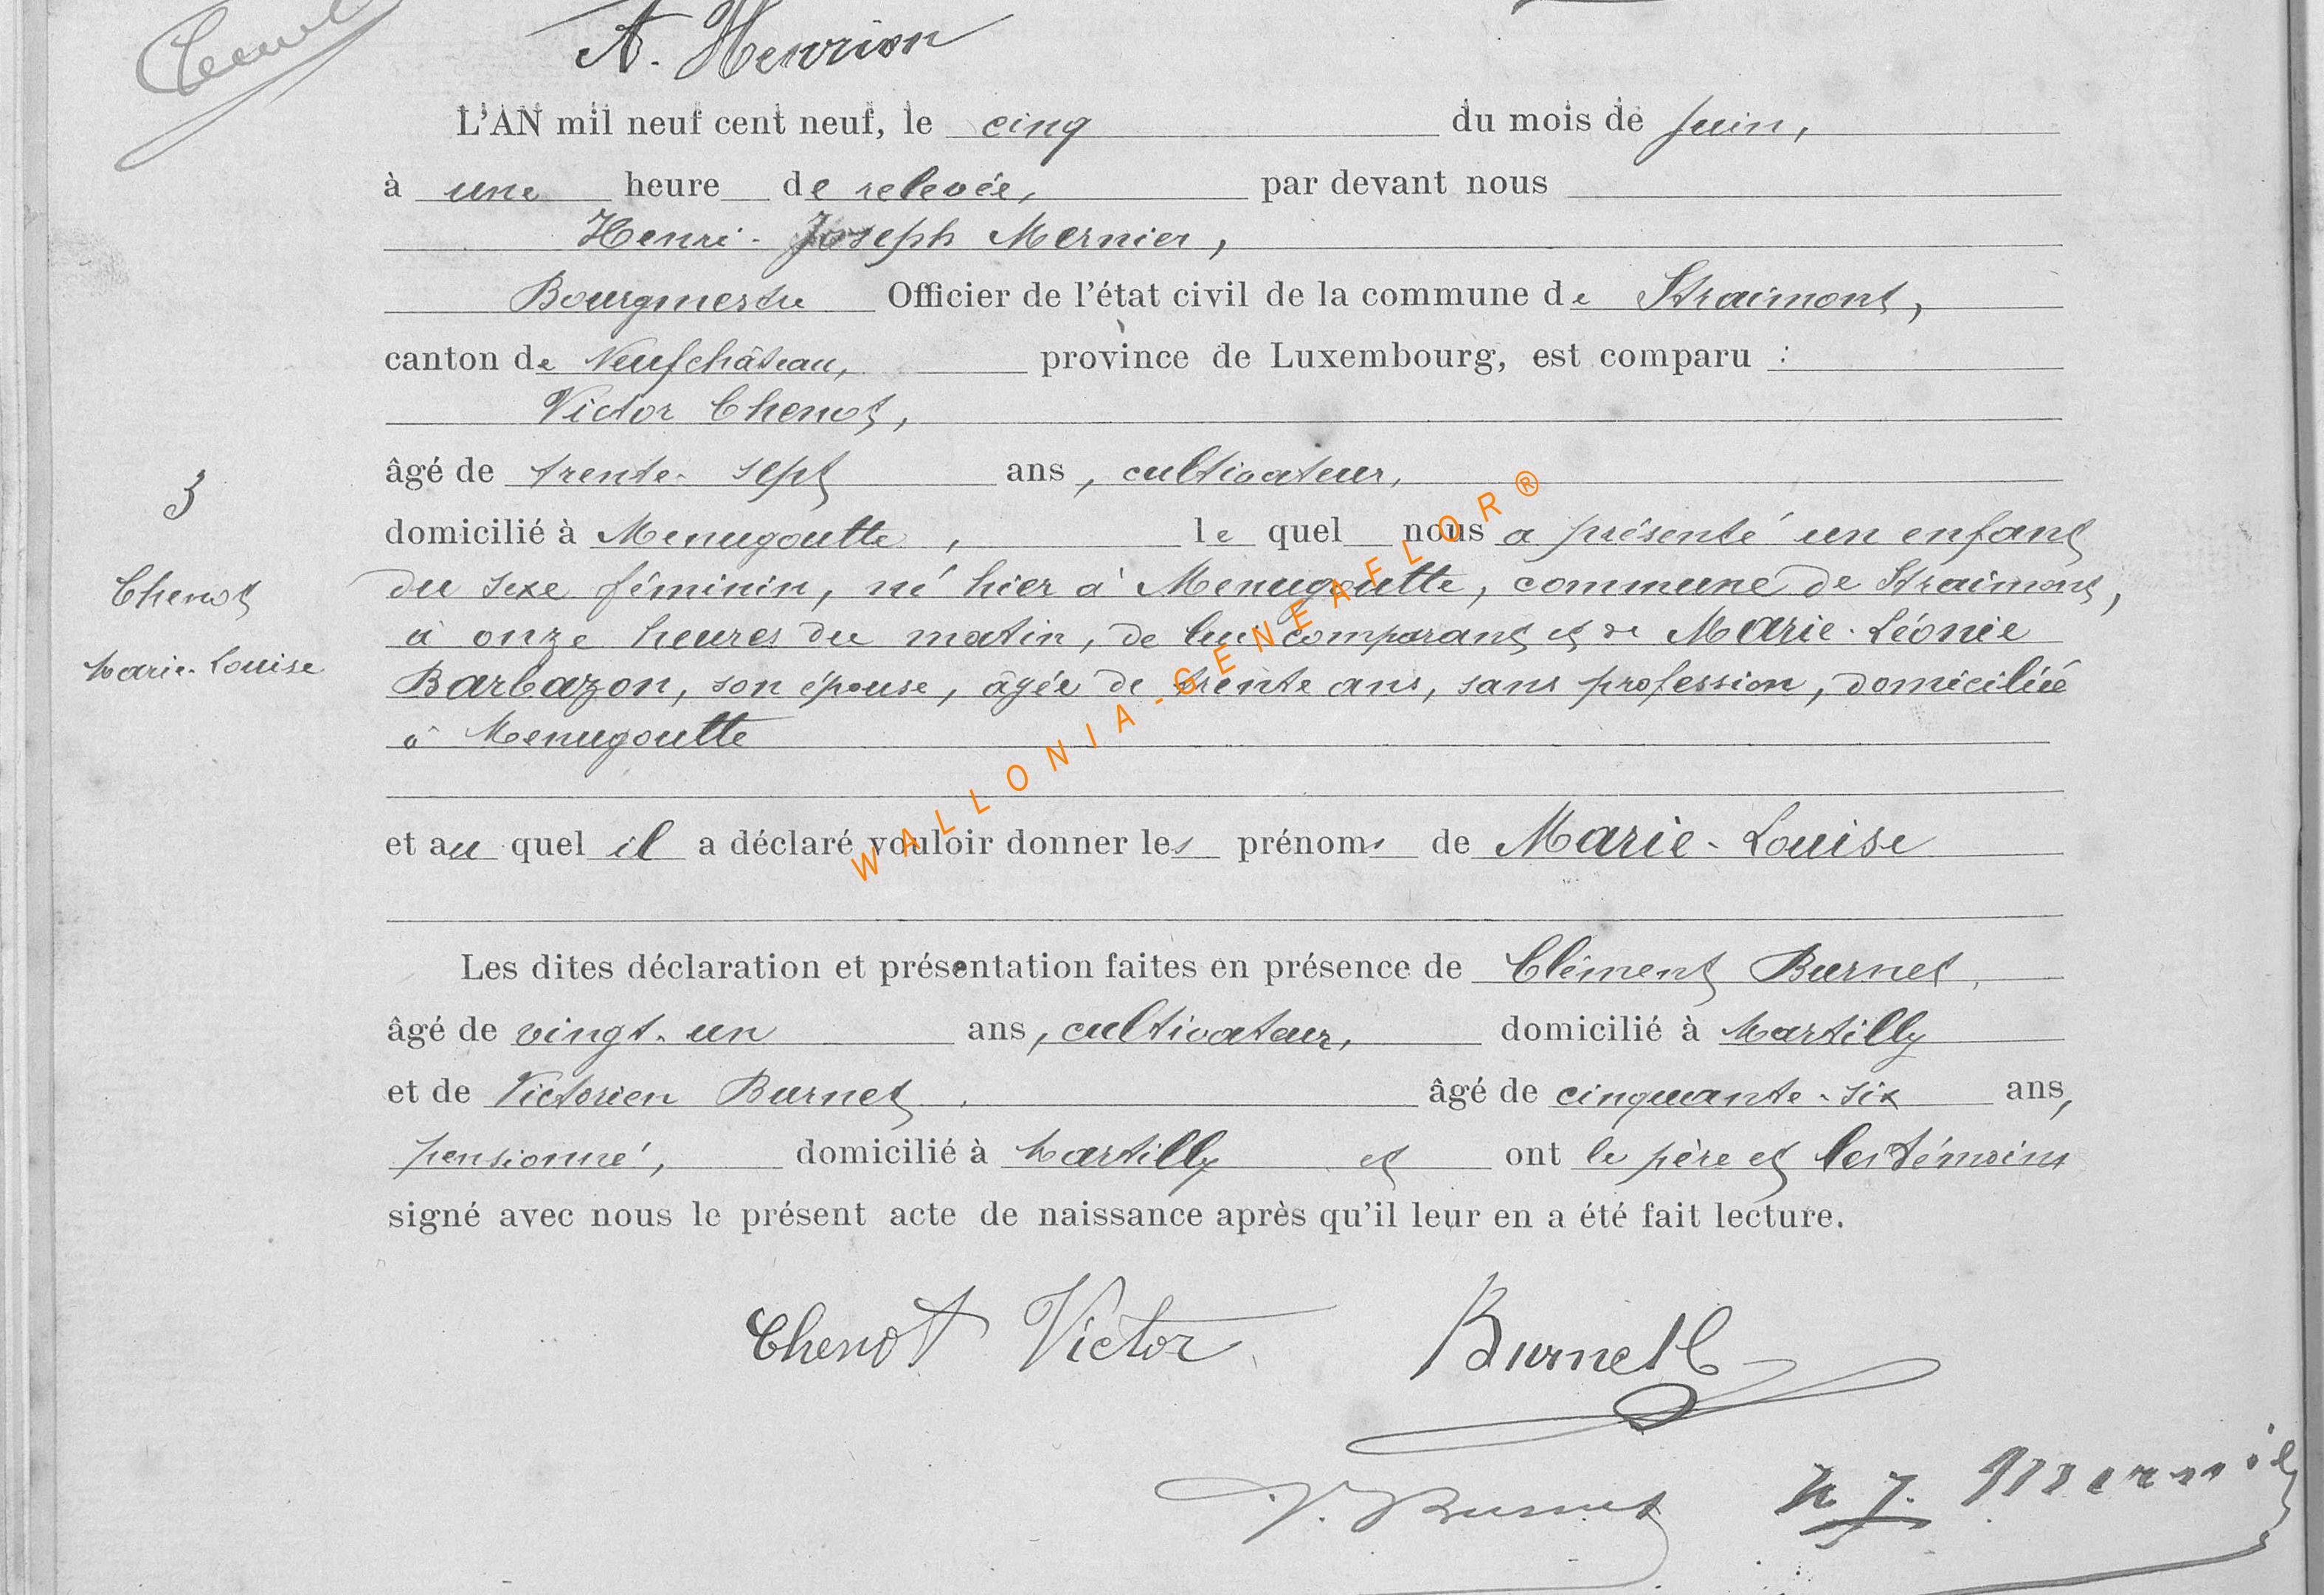 A. Henrion
L'AN mil neuf cent neuf, le cinq du mois de juin,
à une heure de relevée, par devant nous
Henri-Joseph Mernier,
Bourgmestre Officier de l'état civil de la commune de Straimont,
canton de Neufchâteau, province de Luxembourg, est comparu :
Victor Chenot,
âgé de trente-sept ans, cultivateur,
3
domicilié à Menugoutte, le quel nous a présenté un enfant
Chenot
du sexe féminin, né hier à Menugoutte, commune de Straimont,
à onze heures du matin, de lui comparant et de Marie-Léonie
Marie-Louise
Barbazon, son épouse, âgée de trente ans, sans profession, domiciliée
à Menugoutte
et au quel il a déclaré vouloir donner les prénoms de Marie-Louise
Les dites déclaration et présentation faites en présence de Clément Burnet,
âgé de vingt-un ans, cultivateur, domicilié à Martilly
et de Victorien Burnet, âgé de cinquante-six ans,
pensionné, domicilié à Martilly et ont le père et les témoins
signé avec nous le présent acte de naissance après qu'il leur en a été fait lecture.
Chenot Victor Burnet C
V. Burnet H J. Mernier
WALLONIA-GENEAFLOR®